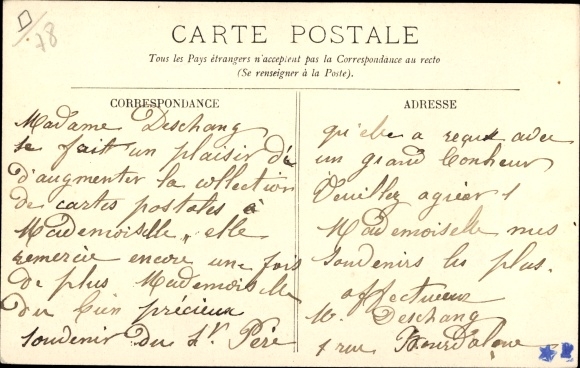 78
CARTE POSTALE
Tous les Pays étrangers n'acceptent pas la Correspondance au recto
(Se renseigner à la Poste).
CORRESPONDANCE
Madame Deschang
se fait un plaisir d'e
d'augmenter la collection
de cartes postales à
Mademoiselle, elle
remercie encore une fois
de plus Mademoiselle
du bien précieux
souvenir du St Père
ADRESSE
qu'elle a reçut avec
un grand bonheur
Veuillez agréer
Mademoiselle mes
souvenirs les plus
affectueux
M. Deschang
1 rue Bourdaloue